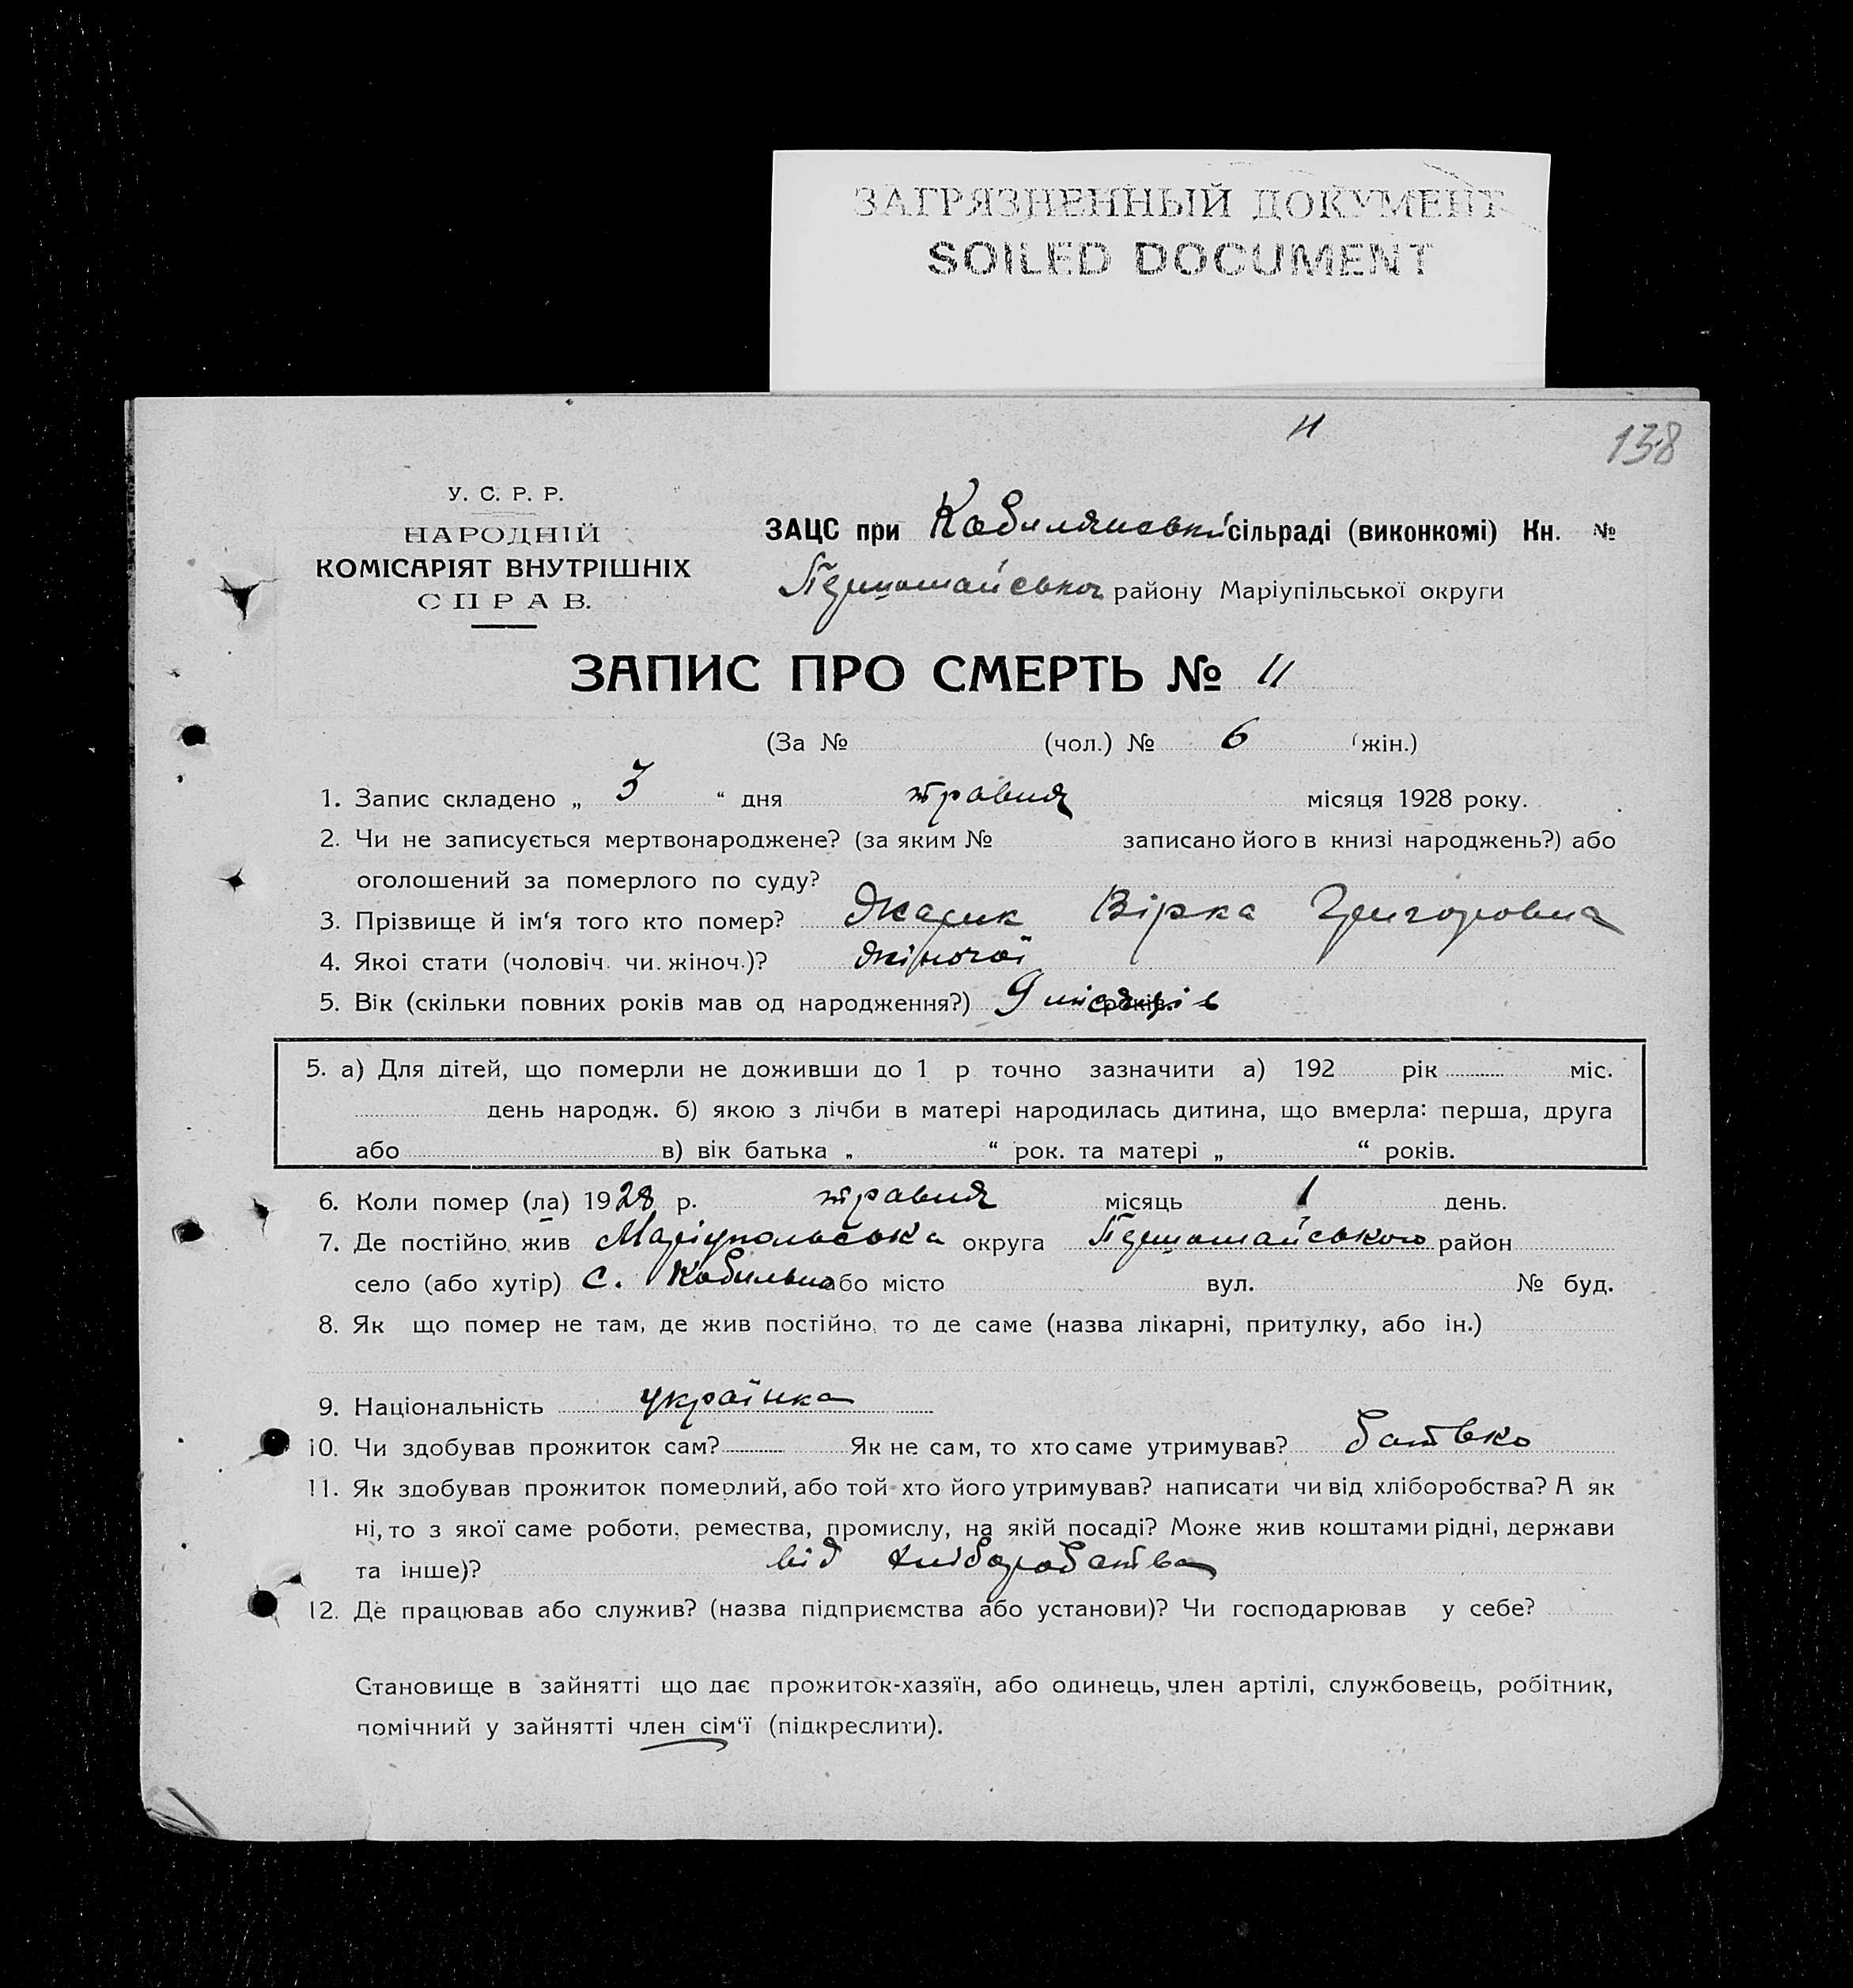 ЗАГРЯЗНЕННЫЙ ДОКУМЕНТ
SOILED DOCUMENT
11
138
У. С. Р. Р.
НАРОДНІЙ
КОМІСАРІЯТ ВНУТРІШНІХ
СПРАВ.
ЗАЦС при сільраді (виконкомі) Кн. №
Першомайськ району Маріупільської округи
ЗАПИС ПРО СМЕРТЬ № 11
(За № (чол.) № 6 (жін.)
1. Запис складено „ 3 “ дня травня місяця 1928 року.
2. Чи не записується мертвонароджене? (за яким № записано його в книзі народжень?) або
оголошений за померлого по суду?
3. Прізвище й ім‘я того кто помер? Жарик Вірка Григоровна
4. Якоі стати (чоловіч. чи. жіноч.)? жіночої
5. Вік (скільки повних років мав од народження?) 9 місяців
5. а) Для дітей, що померли не доживши до 1 р точно зазначити а) 192 рік міс.
день народж. б) якою з лічби в матері народилась дитина, що вмерла: перша, друга
або в) вік батька „ “ рок. та матері „ “ років.
6. Коли помер (ла) 1928 р. травня місяць 1 день.
7. Де постійно жив Маріупольська округа Першомайського район
село (або хутір) с. Кобильна або місто вул. № буд.
8. Як що помер не там, де жив постійно, то де саме (назва лікарні, притулку, або ін.)
9. Національність українка
10. Чи здобував прожиток сам? Як не сам, то хто саме утримував? батько
11. Як здобував прожиток померлий, або той хто його утримував? написати чи від хліборобства? А як
ні, то з якої саме роботи, ремества, промислу, на якій посаді? Може жив коштами рідні, держави
та інше)? від хліборобства
12. Де працював або служив? (назва підприємства або установи)? Чи господарював у себе?
Становище в зайнятті що дає прожиток-хазяїн, або одинець, член артілі, службовець, робітник,
помічний у зайнятті член сім‘ї (підкреслити).